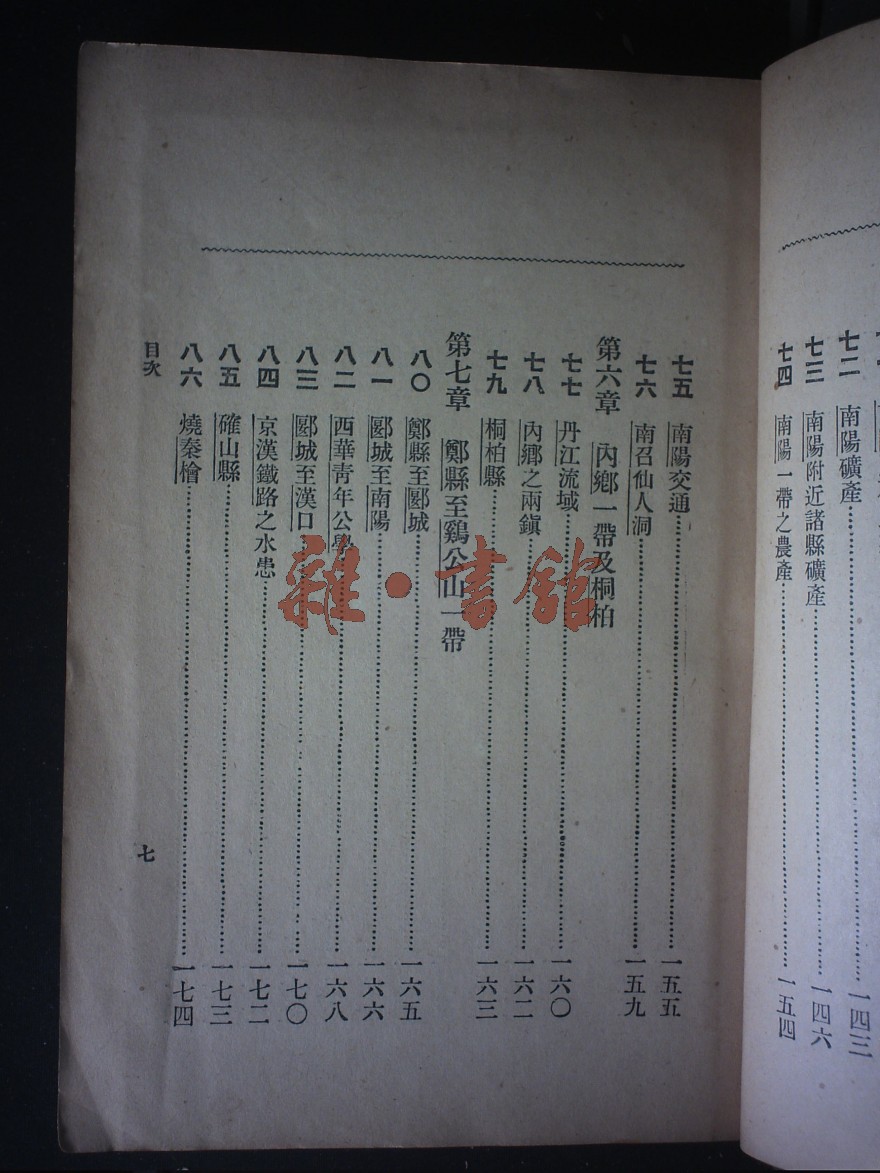 七二 南陽礦產……一四三
七三 南陽附近諸縣礦產……一四六
七四 南陽一帶之農產……一五四
七五 南陽交通……一五五
七六 南召仙人洞……一五九
第六章 內鄉一帶及桐柏
七七 丹江流域……一六〇
七八 內鄉之兩鎭……一六二
七九 桐柏縣……一六三
第七章 鄭縣至鷄公山一帶
八〇 鄭縣至郾城……一六五
八一 郾城至南陽……一六六
八二 西華靑年公學……一六八
八三 郾城至漢口……一七〇
八四 京漢鐵路之水患……一七二
八五 確山縣……一七三
八六 燒秦檜……一七四
目次
七
雜·書館